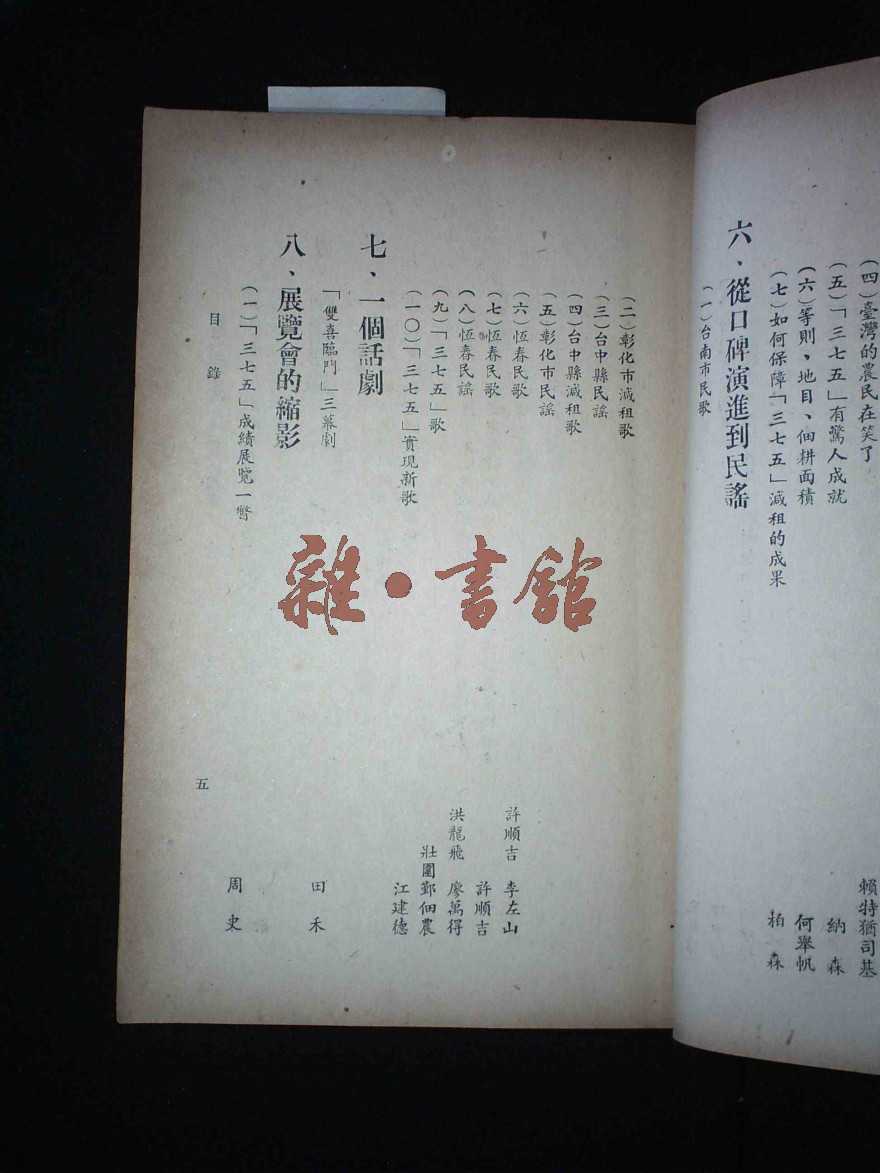 (四)臺灣的農民在笑了 賴特猶司基
(五)「三七五」有驚人成就 納森
(六)等則,地目、佃耕面積 何舉帆
(七)如何保障「三七五」減租的成果 柏森
六、從口碑演進到民謠
(一)台南市民歌
(二)彰化市減租歌
(三)台中縣民謠
(四)台中縣減租歌
(五)彰化市民謠
(六)恆春民歌 許順吉 李左山
(七)恆春民歌 許順吉
(八)恆春民謠 洪龍飛 廖萬得
(九)「三七五」歌 壯圍鄞佃農
(一〇)「三七五」實現新歌 江建德
七、一個話劇
「雙喜臨門」三幕劇 田禾
八、展覽會的縮影
(一)「三七五」成績展覽一瞥 周史
目錄
五
雜·書館